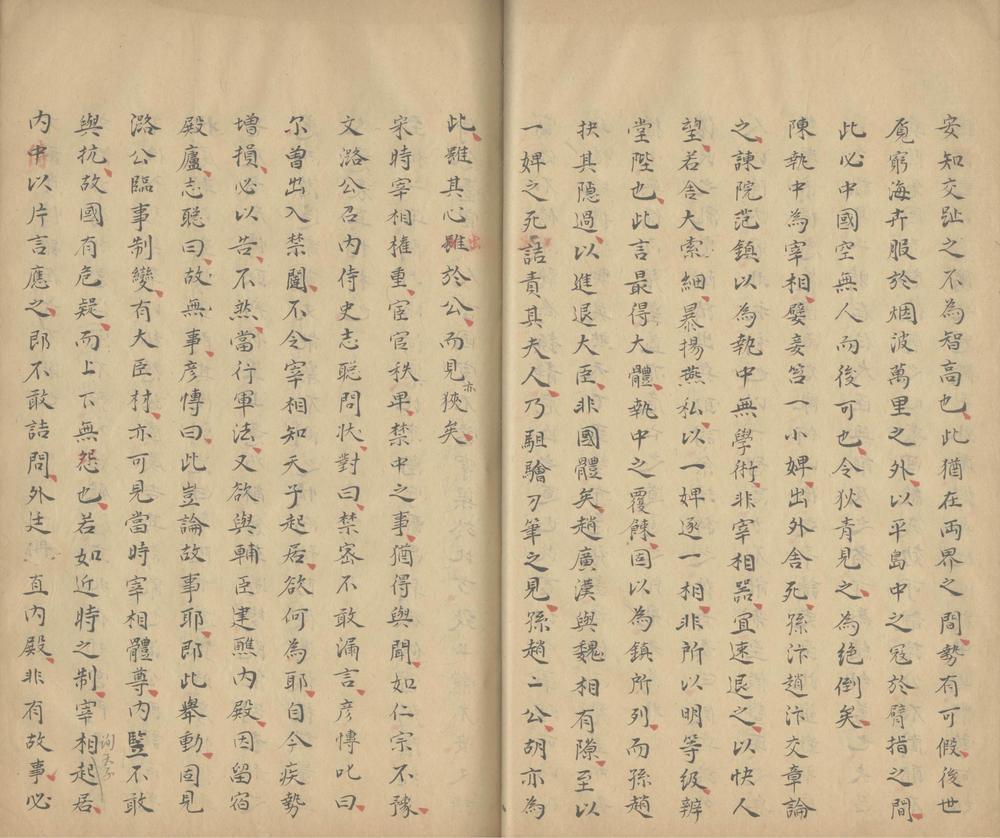 安知交趾之不為智高也此猶在両界之間勢有可假後世
覔窮海卉服於烟波萬里之外以平島中之冦於臂指之間
此必中國空無人而後可也令狄青見之為絕倒矣
陳執中為宰相嬖妾笞一小婢出外舍死孫汴趙汴交章論
之諫院范鎮以為執中無學術非宰相噐宜速退之以快人
望若舍大索細暴揚燕私以一婢逐一相非所以明等級辨
堂陛也此言最得大體執中之覆餗固以為鎮所列而孫趙
抉其隠過以進退大臣非國體矣趙廣漢與魏相有隙至以
一婢之死詰責其夫人乃駔驓刀筆之見孫趙二公胡亦為
此雖其心雖於公而見亦狹矣
宋時宰相權重宦官秩卑禁中之事猶得與聞如仁宗不豫
文潞公召內侍史志聦問状對曰禁宻不敢漏言彦慱叱曰
尔曹出入禁闥不令宰相知天子起居欲何為耶自今疾勢
增損必以告不然當行軍法又欲與輔臣建醮內殿因留宿
殿廬志聦曰故無事彦慱曰此豈論故事耶即此舉動固見
潞公臨事制變有大臣材亦可見當時宰相體尊內豎不敢
與抗故國有危疑而上下無怨也若如近時之制宰相起居
詢天子
內中以片言應之即不敢詰問外廷直內殿非有故事必